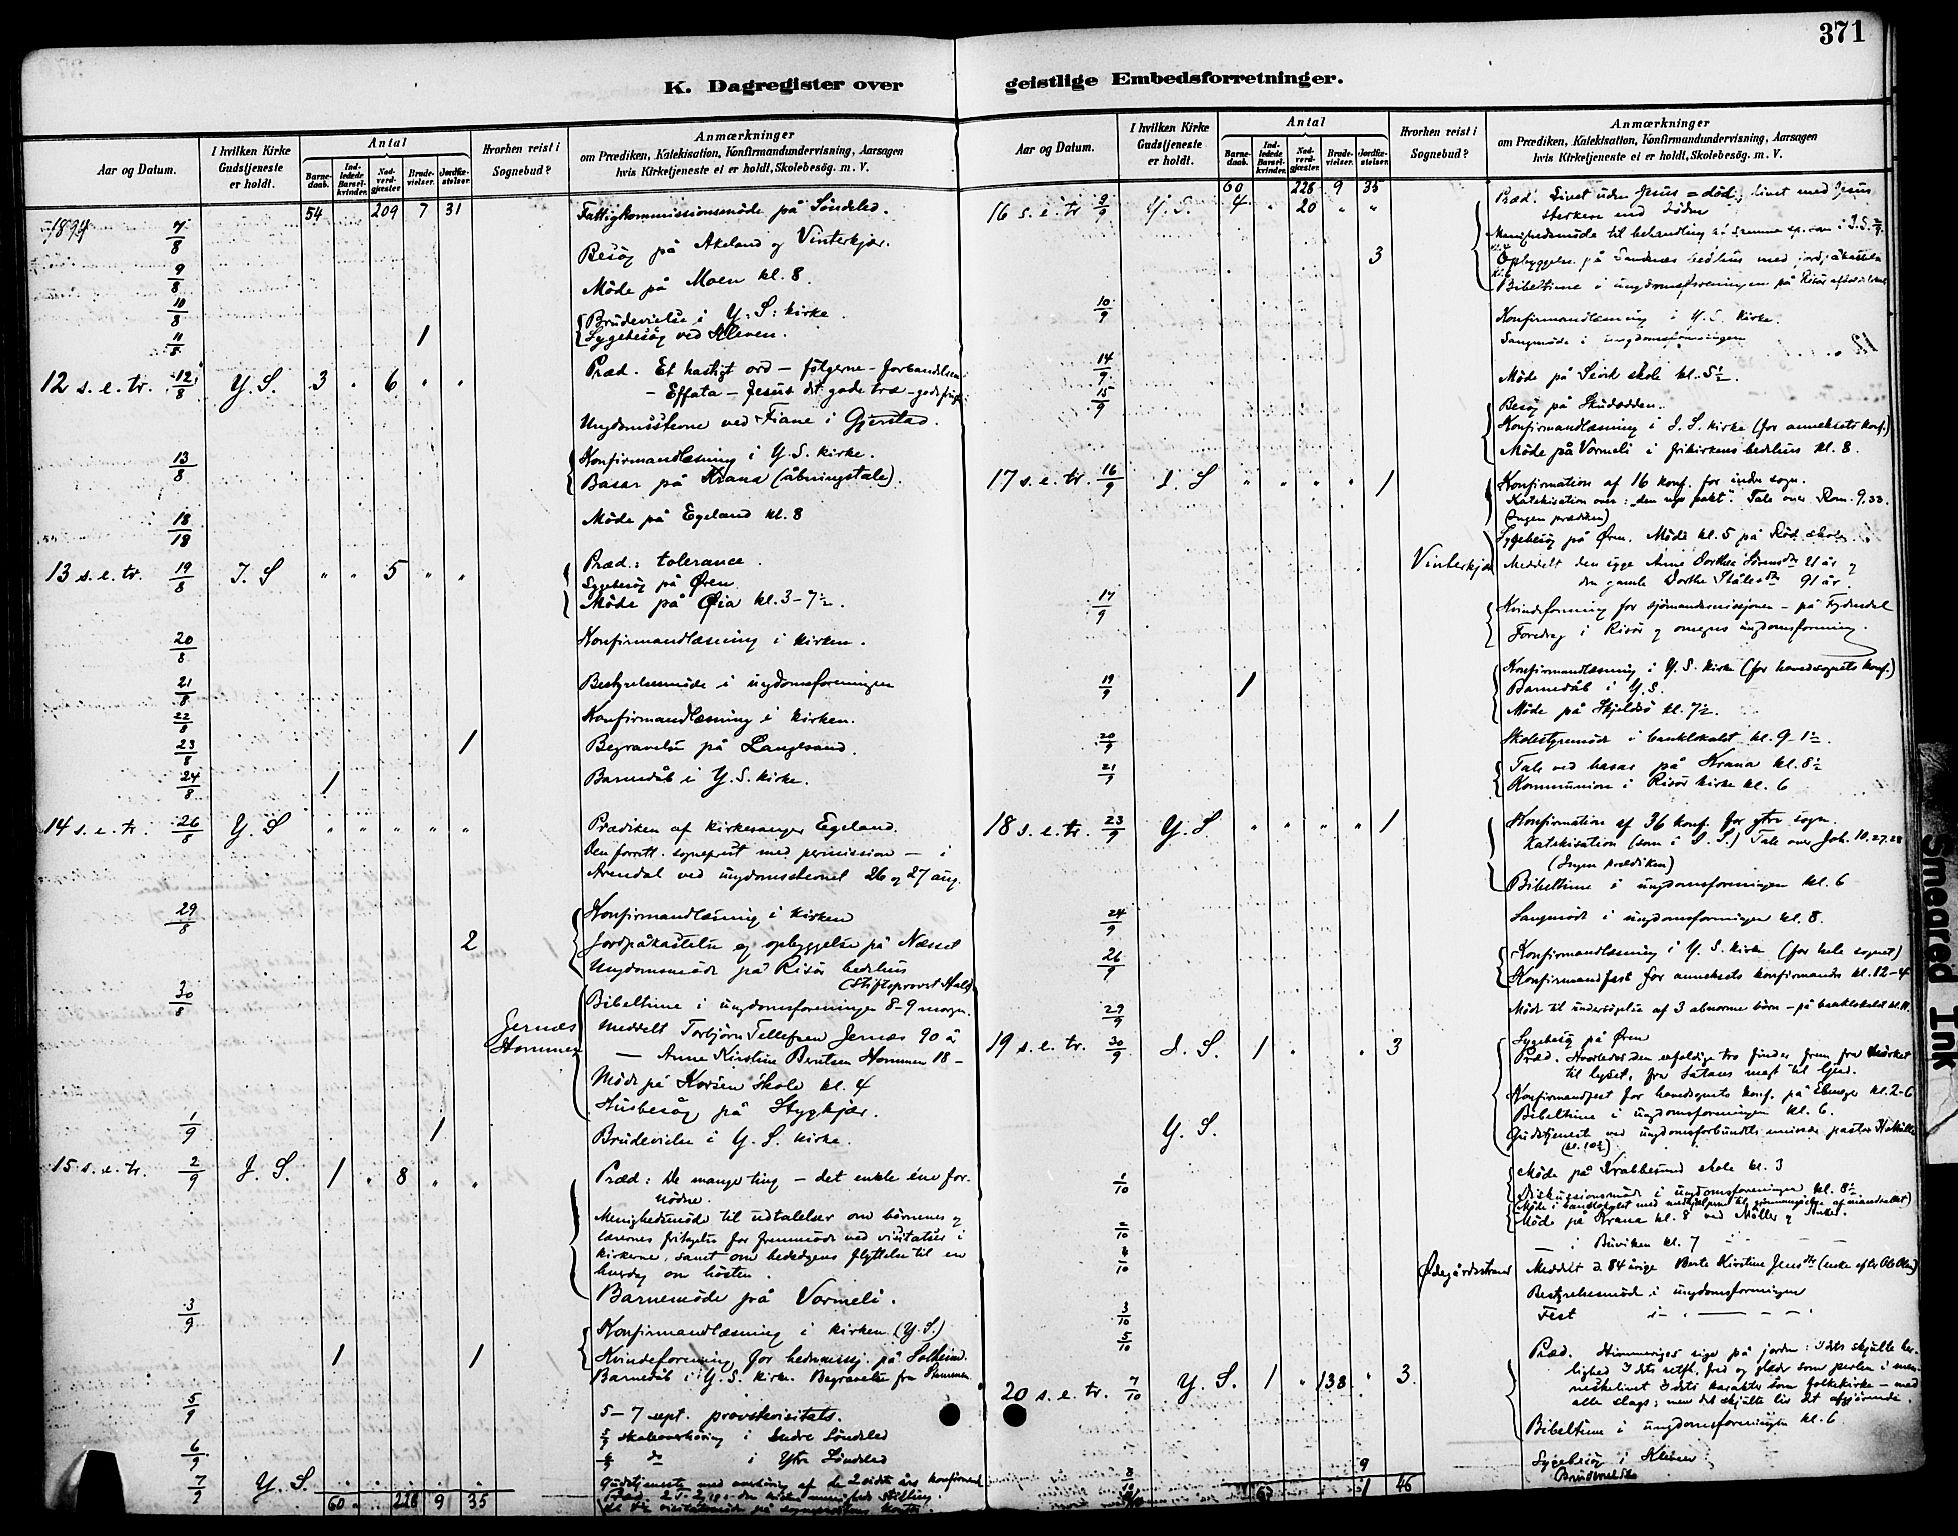 371
K. Dagregister over
geistlige Embedsforretninger.
Aar og Datum.
I hvilken Kirke Gudstjeneste er holdt.
Antal
Barnedaab.
Indledede Barselkvinder.
Nadverdgjæster
Brudevielser.
Jordfæstelser.
Hvorhen reist i Sognebud?
Anmærkninger
om Prædiken, Katekisation, Konfirmandundervisning, Aarsagen
hvis Kirketjeneste ei er holdt, Skolebesøg. m. V.
54 209 7 31 Fattigkommissionsmøde på Søndeled.
1894 7/8 Besøg på Akeland og Vinterkjær.
9/8 Møde på Moen kl. 8.
10/8 Brudevielse i Y. S. kirke.
11/8 1 Sygebesøg ved Kleven.
12 s. e. tr. 12/8 Y. S. 3 " 6 " " Præd. Et hastigt ord – følgerne – forbandelsen
– Effata – Jesus det gode træ – gode frugt
Ungdomsstevne ved Fiane i Gjerstad.
13/8 Konfirmandlæsning i Y. S. kirke.
Basar på Krana (åbningstale).
18/18 Møde på Egeland kl. 8
13 s. e. tr. 19/8 I. S " " 5 " " Præd: tolerance.
Sygebesøg på Øren.
Møde på Øia kl. 3–7½.
20/8 Konfirmandlæsning i kirken.
21/8 Bestyrelsesmøde i ungdomsforeningen
22/8 Konfirmandlæsning i kirken.
23/8 1 Begravelse på Langesand.
24/8 1 Barnedåb i Y. S. kirke.
14 s. e. tr. 26/8 Y. S " " " " " Prædiken af kirkesanger Egeland.
Den forrett. sogneprest med permission – i
Arendal ved ungdomsstevnet 26 og 27 aug.
29/8 Konfirmandlæsning i kirken
2 Jordpåkastelse og opbyggelse på Næsset
Ungdomsmøde på Risør bedehus
(Stiftsprovst Hald)
30/8 Bibeltime i ungdomsforeningen 8–9 morgen
Jernæs Meddelt Torbjørn Tellefsen Jernæs 90 år
Hommen – Anne Kirstine Berntsen Hommen 18 –
Møde på Korsen skole kl. 4
Husbesøg på Stygkjær.
1/9 1 Brudevielse i Y. S. kirke.
15 s. e. tr. 2/9 I. S. 1 " 8 " " Præd: De mange ting – det enkle éne for-
nødne.
Menighedsmøde til udtalelser om børnenes og
lærernes fritagelse for fremmøde ved visitatser i
kirkerne, samt om bededagens flyttelse til en
hverdag om høsten.
Barnemøde på Vormeli.
3/9 Konfirmandlæsning i kirken (Y. S.)
1 1 Kvindeforening for hedmissj. på Solheim.
Barnedåb i Y. S. kirke. Begravelse fra
5/9 5–7 sept. provstevisitats.
5/9 skoleoverhøring i Indre Søndeled
6/9 6/9 do i Ytre Søndeled
7/9 Y. S. Gudstjeneste med overhøring af de 2 sidste års konfirmerede
60 " 228 9 35
Aar og Datum.
I hvilken Kirke Gudstjeneste er holdt.
Antal
Barnedaab.
Indledede Barselkvinder.
Nadverdgjæster.
Brudevielser.
Jordfæstelser.
Hvorhen reist i Sognebud?
Anmærkninger
om Prædiken, Katekisation, Konfirmandundervisning, Aarsagen
hvis Kirketjeneste ei er holdt, Skolebesøg. m. V.
60 228 9 35
16 s. e. tr 9/9 Y. S. 4 " 20 " " Præd. Livet uden Jesus = død; livet med Jesus
sterkere end døden
Menighedsmøde til behandling af samme sp. som i I. S. 2/9.
3 Opbyggelse på Sandnæs bedehus med jordpåkastelse
Bibeltime i ungdomsforeningen på Risør
10/9 Konfirmandlæsning i Y. S. kirke.
Sangmøde i ungdomsforeningen
14/9 Møde på Sivik skole kl. 5½.
15/9 Besøg på Skudodden.
Konfirmandlæsning i I. S. kirke (for anneksets konf.)
Møde på Vormeli i frikirkens bedehus kl. 8.
17 s. e. tr. 16/9 I. S " " " " 1 Konfirmation af 16 konf. for indre sogn.
Katekisation over: "den nye pakt". Tale over Rom. 9,33.
(Ingen prædiken)
Sygebesøg på Øren. Møde kl. 5 på Rød skole
Vinterkjær Meddelt den syge Anne Dorthea 21 år og
den gamle Dorthe 91 år.
17/9 Kvindeforening for sjømandsmissionen – på Fydendal
Foredrag i Risør og omegns ungdomsforening.
19/9 1 Konfirmandlæsning i Y. S. kirke (for hovedsognets konf.)
Barnedåb i Y. S.
Møde på Skjeldsø kl. 7½.
20/9 Skolestyremøde i banklokalet kl. 9–1½.
21/9 Tale ved basar på Krana kl. 8½
Kommunion i Risør kirke kl. 6
18 s. e. tr. 23/9 Y. S. " " " " 1 Konfirmation af 36 konf. for ytre sogn.
Katekisation (som i I. S.) Tale over Joh. 10,27.28
(Ingen prædiken)
Bibeltime i ungdomsforeningen kl. 6
24/9 Sangmøde i ungdomsforeningen kl. 8.
26/9 Konfirmandlæsning i Y. S. kirke (for hele sognet)
Konfirmandfest for anneksets konfirmander kl. 12–4
29/9 Møde til undersøgelse af 3 abnorme børn – på banklokalet kl. 11.
19 s. e. tr. 30/9 I. S. 1 " " 3 Sygebesøg på Øren
Præd. Hvorledes den enfoldige tro finder frem fra mørket
til lyset, fra Satans magt til Gud.
Konfirmandfest for hovedsognets konf. på Ebenezer kl. 2–6
Bibeltime i ungdomsforeningen kl. 6.
Y. S. Gudstjeneste ved ungdomsforbundets pastor Møller
(kl. 10½)
1/10 Møde på Krabbesund skole kl. 3
Diskussionsmøde i ungdomsforeningen kl. 8½
2/10 Møde på Krana kl. 8 ved Møller og
– i Buviken kl. 7
4/10 Ødegårdsstrand Meddelt d. 84 årige Berte Kirstine Jensdtr (enke efter Ole Olsen)
Bestyrelsesmøde i ungdomsforeningen
3/10 Fest i – " –
5/10
20 s. e. tr. 7/10 Y. S. 1 " 138 " 3 Præd. Himmeriges rige på jorden: I dets skjulte her-
lighed I dets retfd. fred og glæde som perlen i men-
neskelivet I dets karakter som folkekirke – med
alle slags; men det skjulte liv det afgjørende.
Bibeltime i ungdomsforeningen kl. 6
8/10 Sygebesøg i Kleven
9 Brudevielse
1 46
Smeared Ink